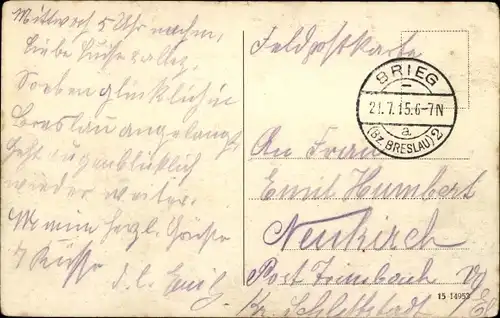 Mittwoch 5 Uhr nachm,
Liebe Luise
Soeben glücklich in
Breslau angelangt
Geht augenblicklich
wieder weiter.
herzl. Grüße
& Küsse
d. l. Emil
Feldpostkarte
BRIEG
21.7.15.6-7N
a
(Bz. BRESLAU) 2
An Frau
Emil Humbert
Neukirch
Post
Schlettstadt
15 14953